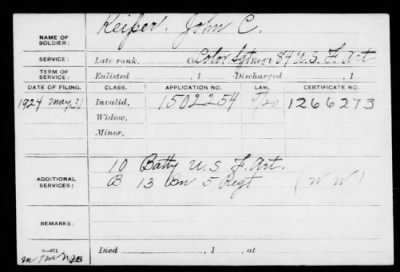 NAME OF SOLDIER: Keiper. John C.
SERVICE: Late rank, Color Sgt Regt 84 U.S. F. Art
TERM OF SERVICE: Enlisted , 1 Discharged , 1
DATE OF FILING. CLASS. APPLICATION NO. LAW. CERTIFICATE NO.
1924 May 31 Invalid, 1502254 1266273
Widow,
Minor,
ADDITIONAL SERVICES: 10 Batty U.S. F. Art.
B 13 Bn 5 Regt (W W)
REMARKS:
Died , 1 , at